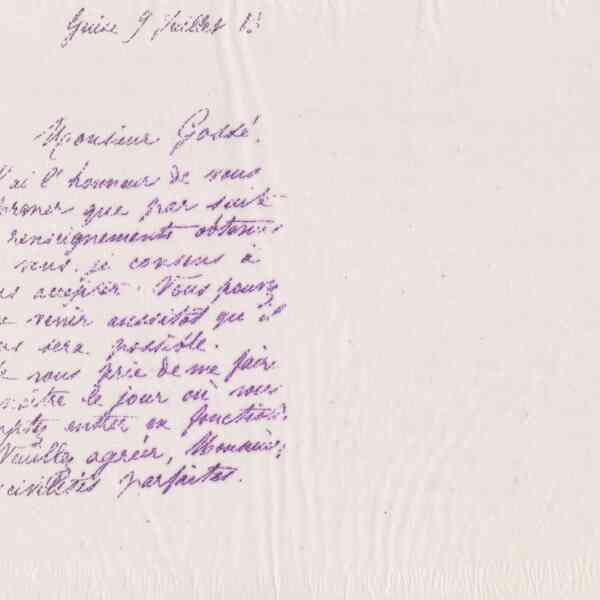 Guise 9 Juillet 8
Monsieur Godsé,
'ai l'honneur de vous
ormer que par suite
renseignements obtenus
vous, je consens à
us accepter. Vous pouvez
venir aussitôt qu'il
us sera possible.
vous prie de me faire
naître le jour où vous
mptez entrer en fonctions.
Veuillez agréer, Monsieur,
civilités parfaites.